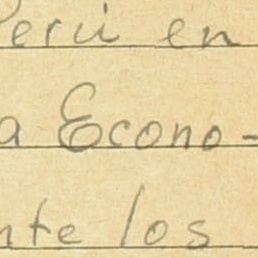 Perú en
a Econo-
nte los